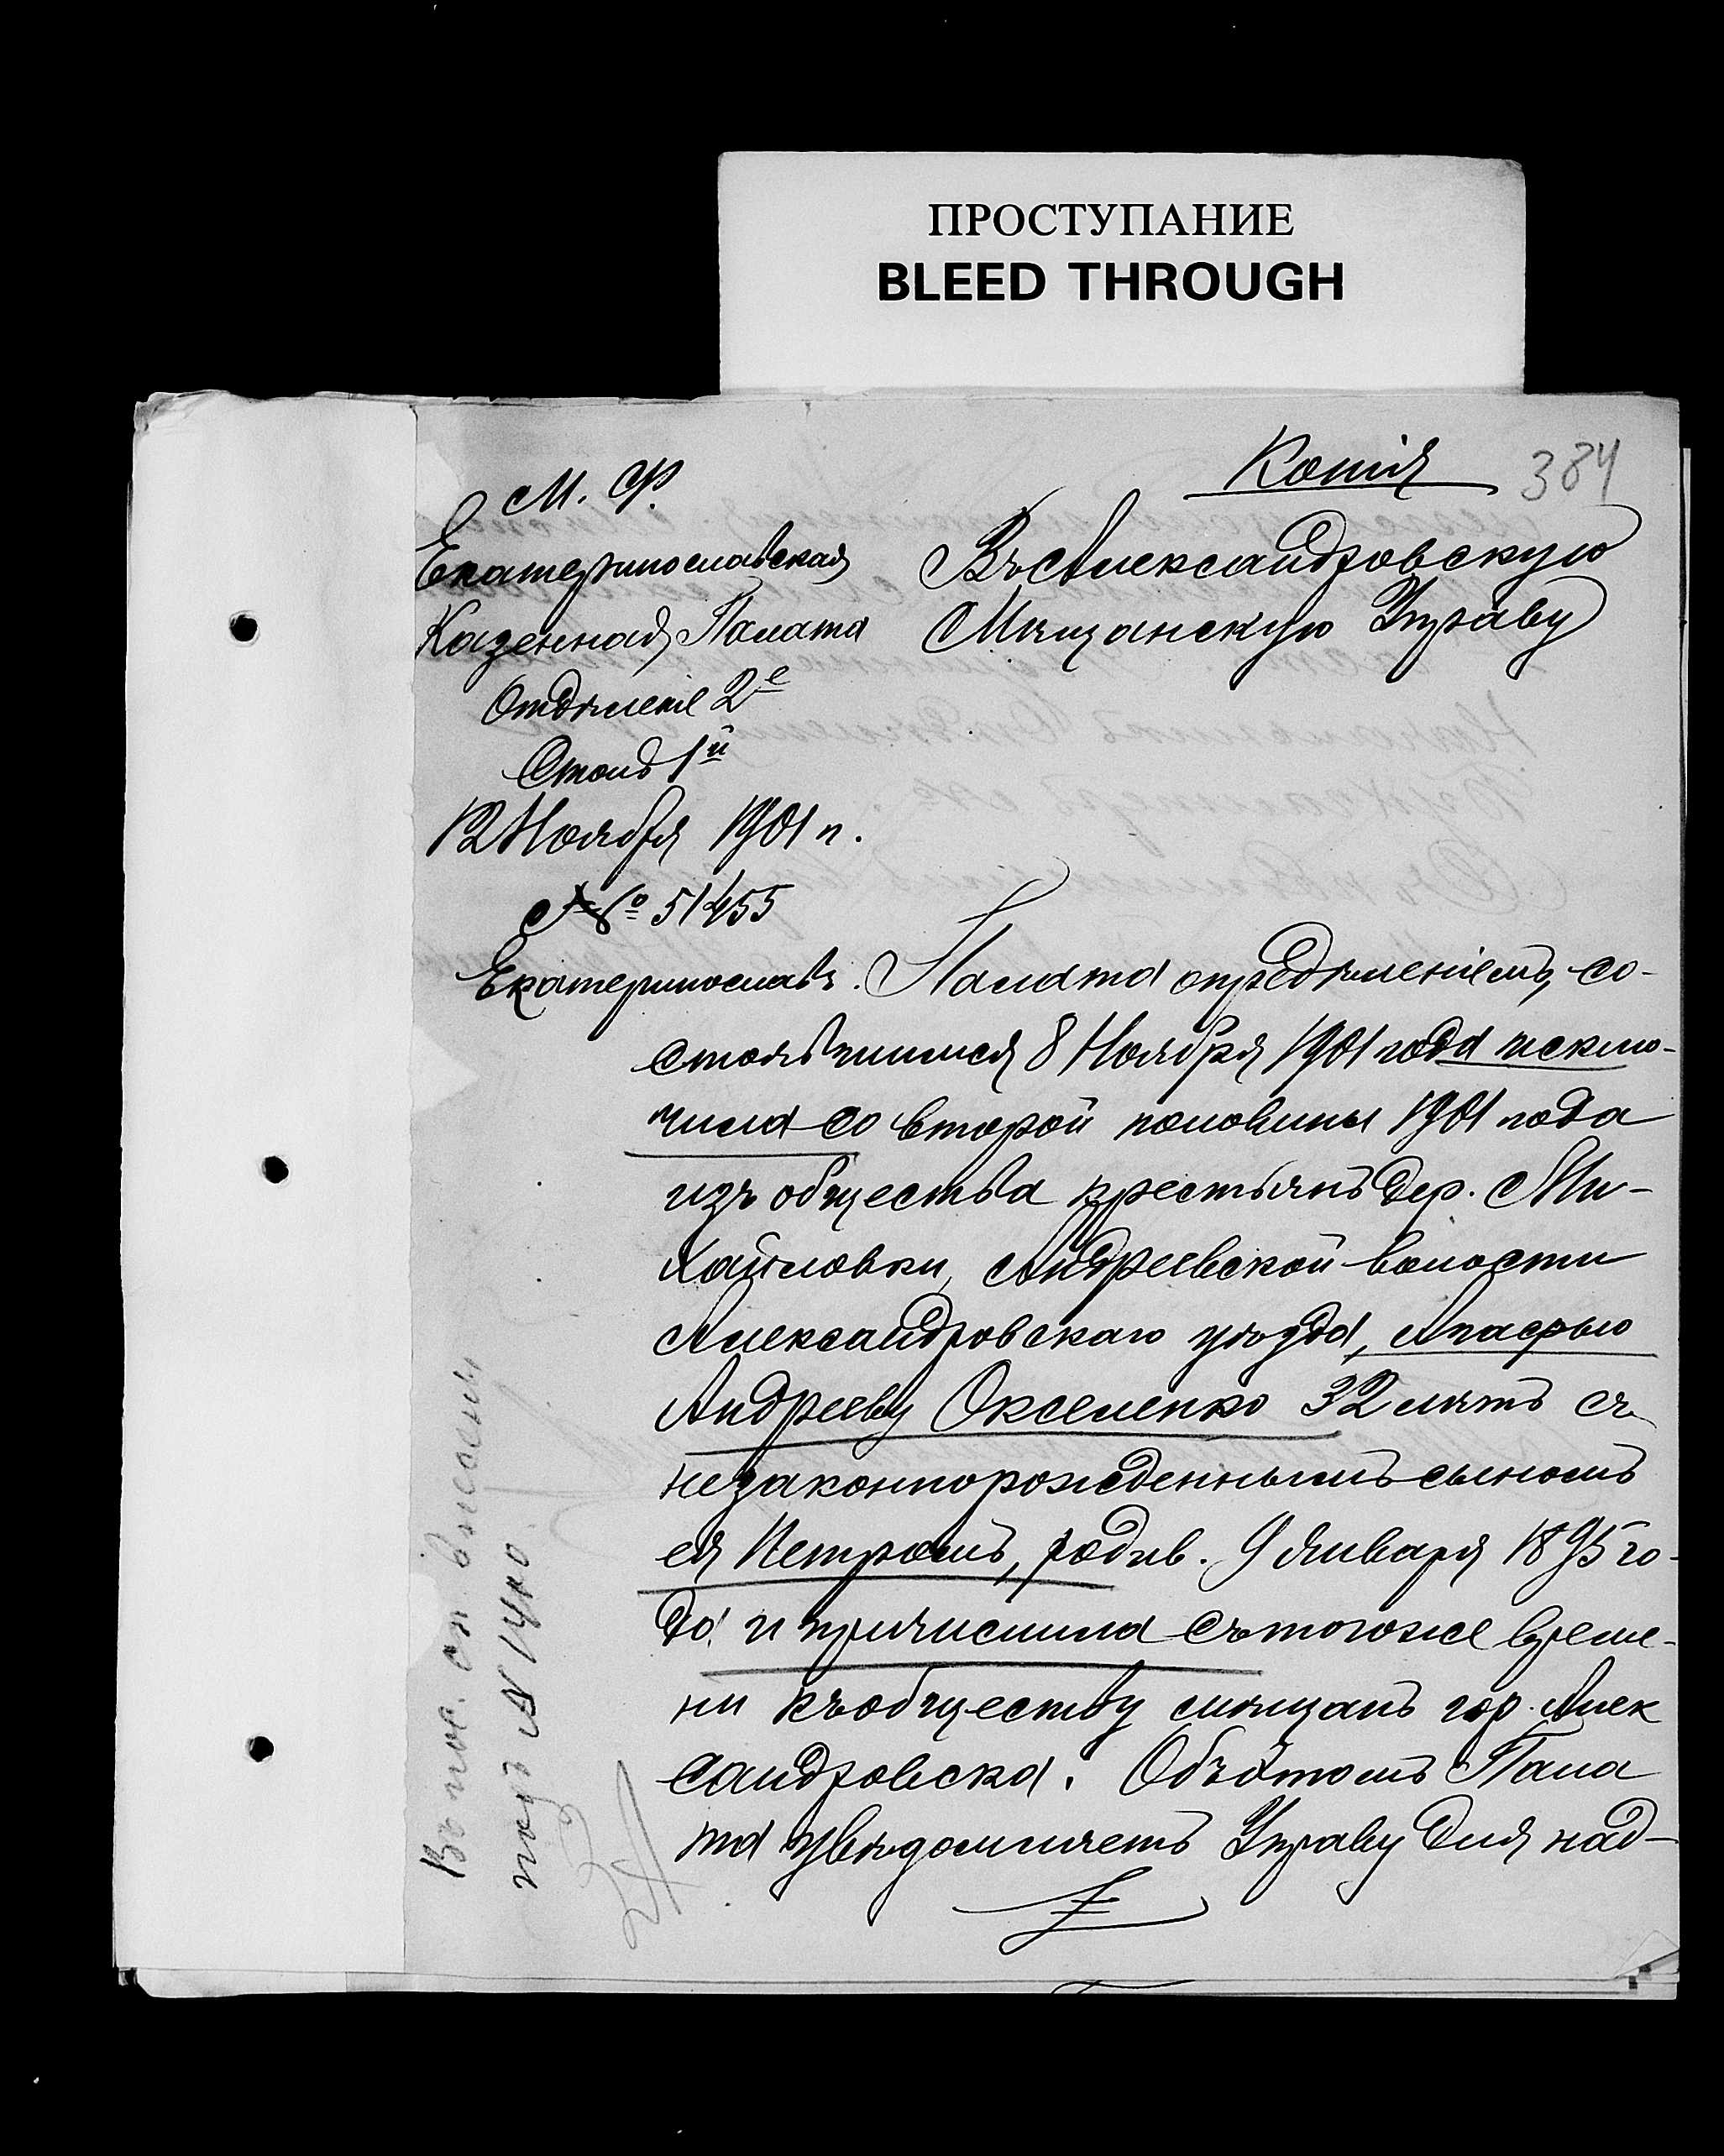 ПРОСТУПАНИЕ
BLEED THROUGH
Копія 384
М. Ф.
Екатеринославская
Казенная Палата
Отдѣленіе 2е
Столъ 1й
12 Ноября 1901 г.
№ 51455
Екатеринославъ.
Въ Александровскую
Мѣщанскую Управу
Палата опредѣленіемъ, со-
стоявшимся 8 Ноября 1901 года исклю-
чила со второй половины 1901 года
изъ общества крестьянъ дер. Ми-
хайловки, Андреевской волости
Александровскаго уѣзда,
Андрееву Окселенко 32 лѣтъ съ
незаконнорожденнымъ сыномъ
ея Петромъ, родив. 9 Января 1895 го-
да и причислила съ того же време-
ни къ обществу мѣщанъ гор. Алек
сандровска. Объ этомъ Пала
та увѣдомляетъ Управу для над-
Въ пос. сп. внесены
подъ № 1440